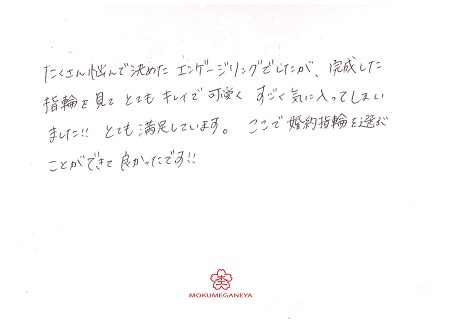 たくさん悩んで決めた エンゲージリングでしたが、完成した
指輪を見て とても キレイで 可愛く すごく 気に入ってしまい
ました!! とても 満足しています。 ここで 婚約指輪を選ぶ
ことができて 良かったです!!
MOKUMEGANEYA